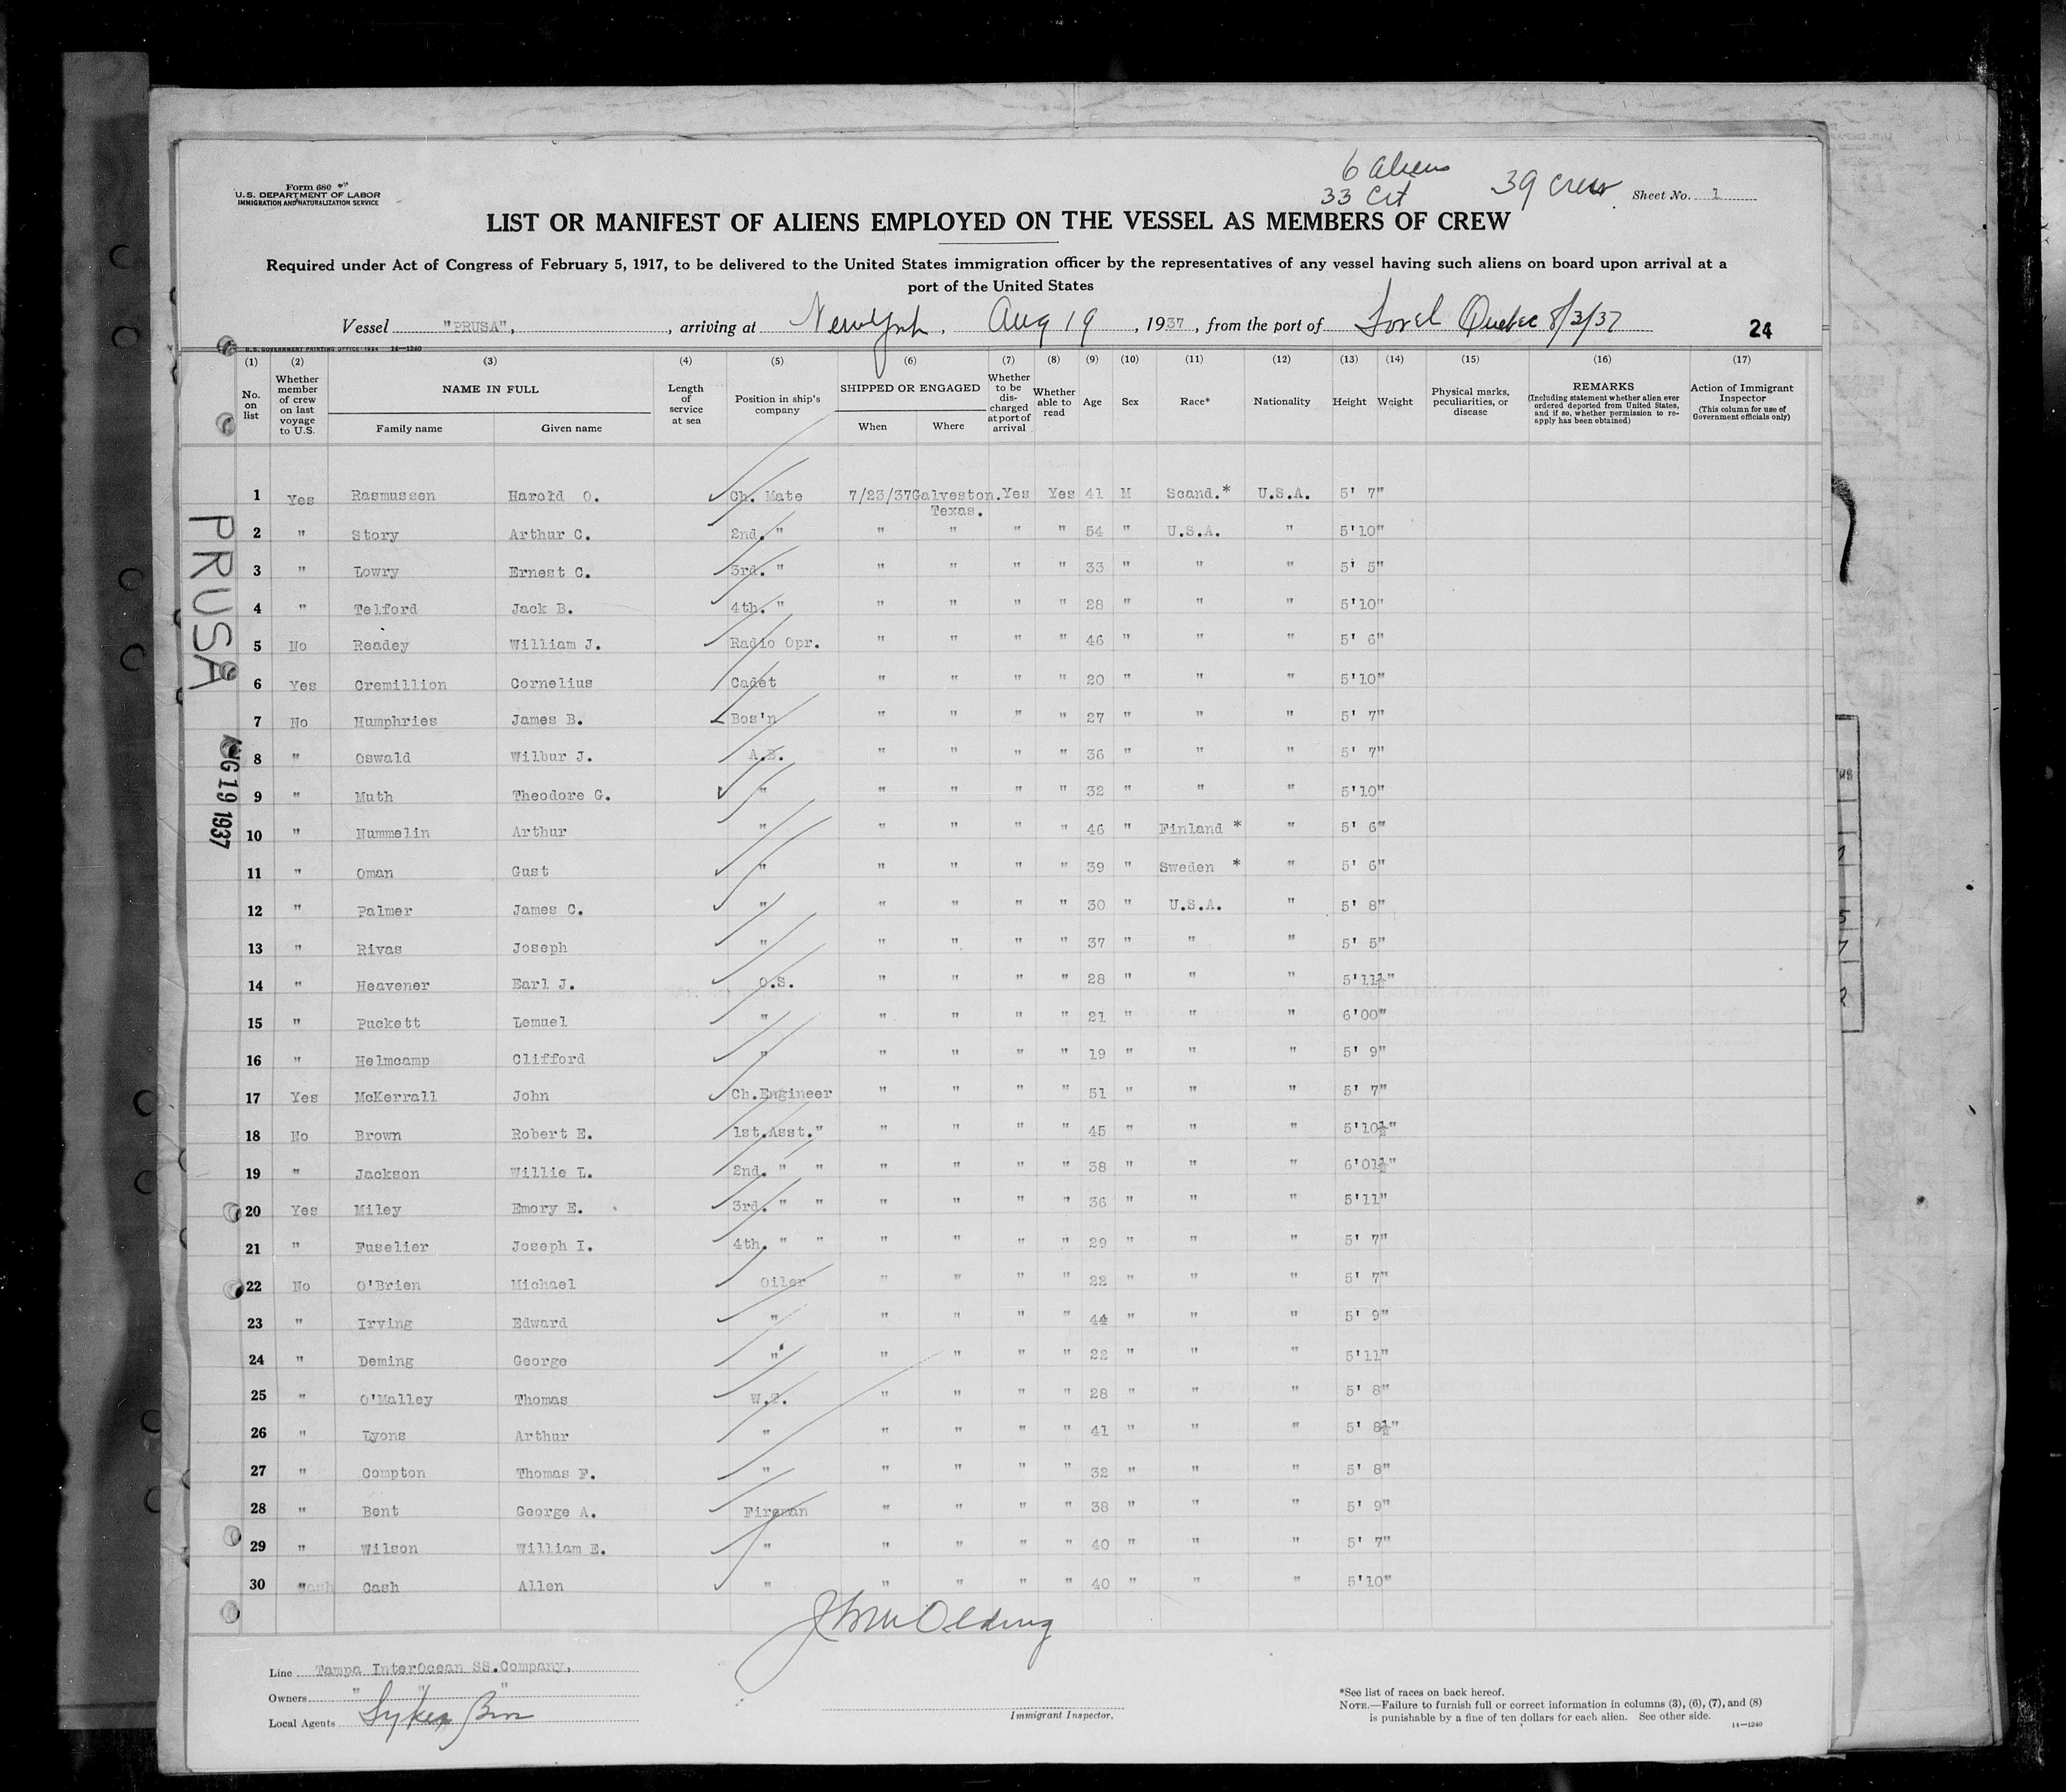 6 aliens
33 Cit
39 crew
Form 680
U.S. DEPARTMENT OF LABOR
IMMIGRATION AND NATURALIZATION SERVICE
Sheet No. 1
LIST OR MANIFEST OF ALIENS EMPLOYED ON THE VESSEL AS MEMBERS OF CREW
Required under Act of Congress of February 5, 1917, to be delivered to the United States immigration officer by the representatives of any vessel having such aliens on board upon arrival at a
port of the United States
Vessel "PRUSA", , arriving at New York, Aug 19, 1937, from the port of Sorel Quebec 8/3/37
24
U.S. GOVERNMENT PRINTING OFFICE: 1934 14—1240
(1) (2) (3) (4) (5) (6) (7) (8) (9) (10) (11) (12) (13) (14) (15) (16) (17)
No. on list
Whether member of crew on last voyage to U.S.
NAME IN FULL
Family name
Given name
Length of service at sea
Position in ship's company
SHIPPED OR ENGAGED
When
Where
Whether to be discharged at port of arrival
Whether able to read
Age
Sex
Race*
Nationality
Height
Weight
Physical marks, peculiarities, or disease
REMARKS
(Including statement whether alien ever ordered deported from United States, and if so, whether permission to re-apply has been obtained)
Action of Immigrant Inspector
(This column for use of Government officials only)
1 Yes Rasmussen Harold O. Ch. Mate 7/23/37 Galveston. Yes Yes 41 M Scand.* U.S.A. 5' 7"
Texas.
2 " Story Arthur C. 2nd. " " " " " 54 " U.S.A. " 5'10"
3 " Lowry Ernest C. 3rd. " " " " " 33 " " " 5' 5"
4 " Telford Jack B. 4th. " " " " " 28 " " " 5'10"
5 No Readey William J. Radio Opr. " " " " 46 " " " 5' 6"
6 Yes Cremillion Cornelius Cadet " " " " 20 " " " 5'10"
7 No Humphries James B. Bos'n " " " " 27 " " " 5' 7"
8 " Oswald Wilbur J. A.B. " " " " 36 " " " 5' 7"
9 " Muth Theodore G. " " " " " 32 " " " 5'10"
10 " Nummelin Arthur " " " " " 46 " Finland * " 5' 6"
11 " Oman Gust " " " " " 39 " Sweden * " 5' 6"
12 " Palmer James C. " " " " " 30 " U.S.A. " 5' 8"
13 " Rivas Joseph " " " " " 37 " " " 5' 5"
14 " Heavener Earl J. O.S. " " " " 28 " " " 5'11½"
15 " Puckett Lemuel " " " " " 21 " " " 6'00"
16 " Helmcamp Clifford " " " " " 19 " " " 5' 9"
17 Yes McKerrall John Ch.Engineer " " " " 51 " " " 5' 7"
18 No Brown Robert E. 1st.Asst." " " " " 45 " " " 5'10½"
19 " Jackson Willie L. 2nd. " " " " " " 38 " " " 6'01½"
20 Yes Miley Emory E. 3rd. " " " " " " 36 " " " 5'11"
21 " Fuselier Joseph I. 4th. " " " " " " 29 " " " 5' 7"
22 No O'Brien Michael Oiler " " " " 22 " " " 5' 7"
23 " Irving Edward " " " " " 44 " " " 5' 9"
24 " Deming George " " " " " 22 " " " 5'11"
25 " O'Malley Thomas W.T. " " " " 28 " " " 5' 8"
26 " Lyons Arthur " " " " " 41 " " " 5' 8½"
27 " Compton Thomas F. " " " " " 32 " " " 5' 8"
28 " Bent George A. Fireman " " " " 38 " " " 5' 9"
29 " Wilson William E. " " " " " 40 " " " 5' 7"
30 " Cash Allen " " " " " 40 " " " 5'10"
PRUSA
AUG 19 1937
Line Tampa InterOcean SS.Company,
Owners " " "
Local Agents Sykes Bros
Immigrant Inspector.
*See list of races on back hereof.
NOTE.—Failure to furnish full or correct information in columns (3), (6), (7), and (8)
is punishable by a fine of ten dollars for each alien. See other side.
14—1240